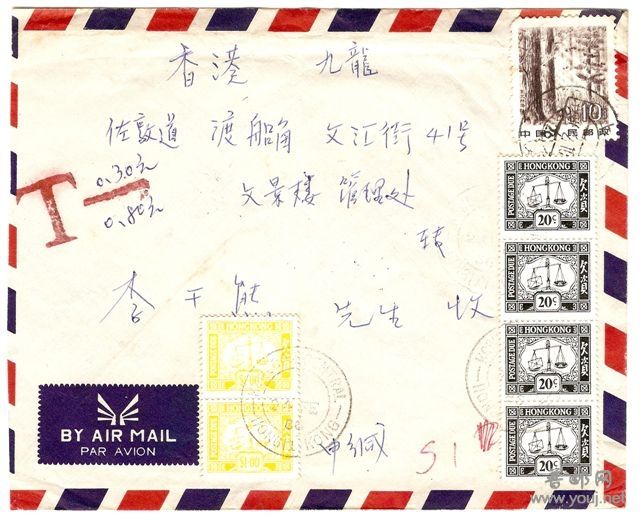 香港 九龍
佐敦道 渡船角 文江街41号
文景樓 管理处
转
李 先生 收
T
0.30元
0.80元
中国人民邮政
10
HONGKONG
POSTAGE DUE
欠資
20¢
HONGKONG
POSTAGE DUE
欠資
20¢
HONGKONG
POSTAGE DUE
欠資
20¢
HONGKONG
POSTAGE DUE
欠資
20¢
HONG KONG
$1.00
$1.00
HONG KONG
BY AIR MAIL
PAR AVION
$1
www.youj.net